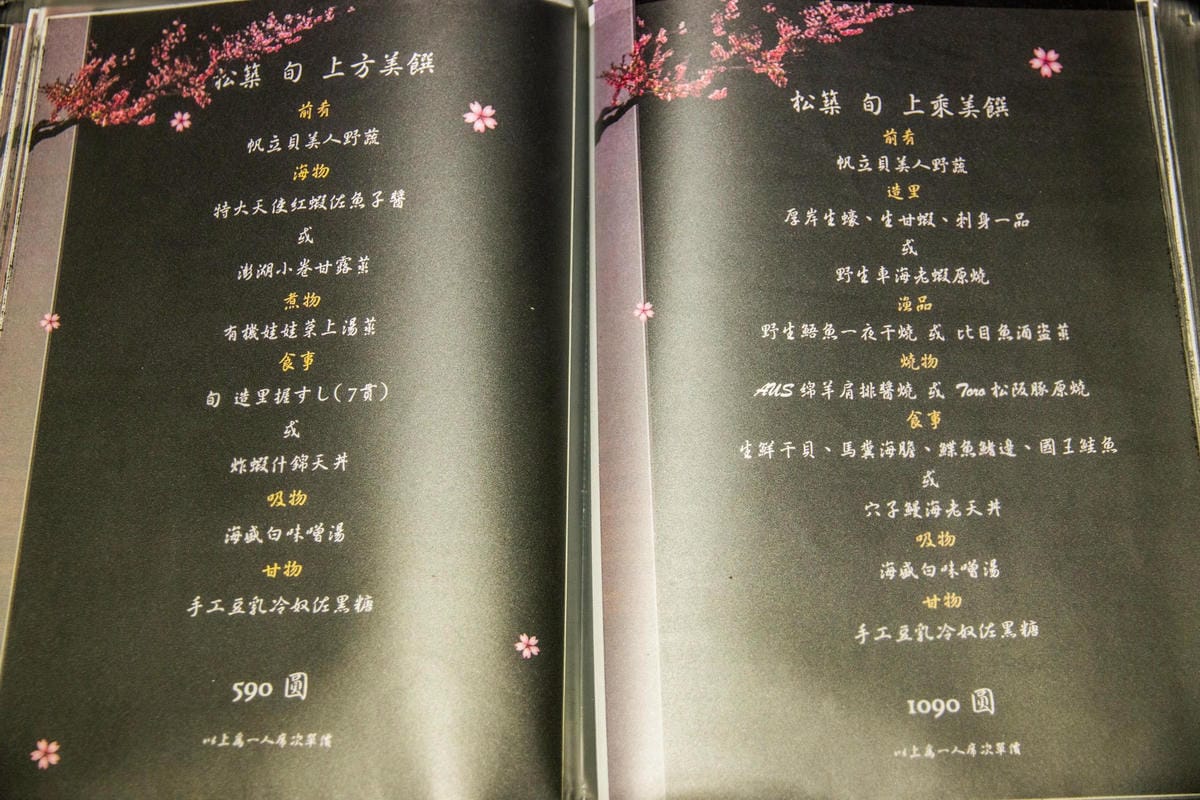 松築 旬 上方美饌
前肴
帆立貝美人野蔬
海物
特大天使紅蝦佐魚子醬
或
澎湖小卷甘露蒸
煮物
有機娃娃菜上湯蒸
食事
旬 造里握すし(7貫)
或
炸蝦什錦天丼
吸物
海盛白味噌湯
甘物
手工豆乳冷奴佐黑糖
590 圓
以上為一人席次單價
松築 旬 上乘美饌
前肴
帆立貝美人野蔬
造里
厚岸生蠔、生甘蝦、刺身一品
或
野生車海老蝦原燒
漁品
野生鯃魚一夜干燒 或 比目魚酒盜蒸
燒物
AUS 綿羊肩排醬燒 或 Toro 松阪豚原燒
食事
生鮮干貝、馬糞海膽、鰈魚鰭邊、國王鮭魚
或
穴子鰻海老天丼
吸物
海盛白味噌湯
甘物
手工豆乳冷奴佐黑糖
1090 圓
以上為一人席次單價